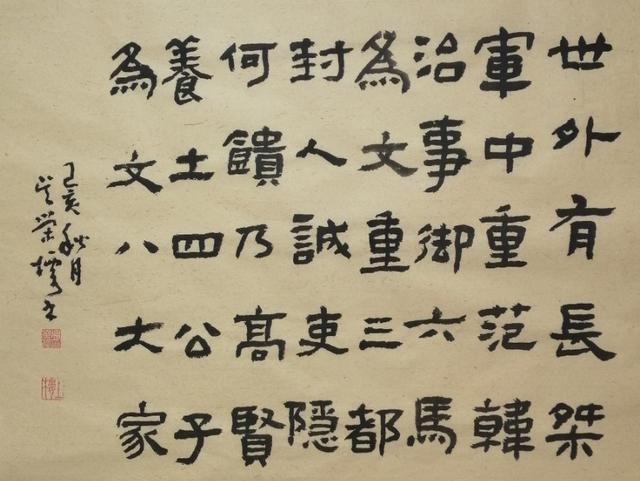 世外有長桀
軍中重范韓
治事御六馬
為文重三都
封人誠吏隱
何饋乃高賢
養士四公子
為文八大家
己亥秋月